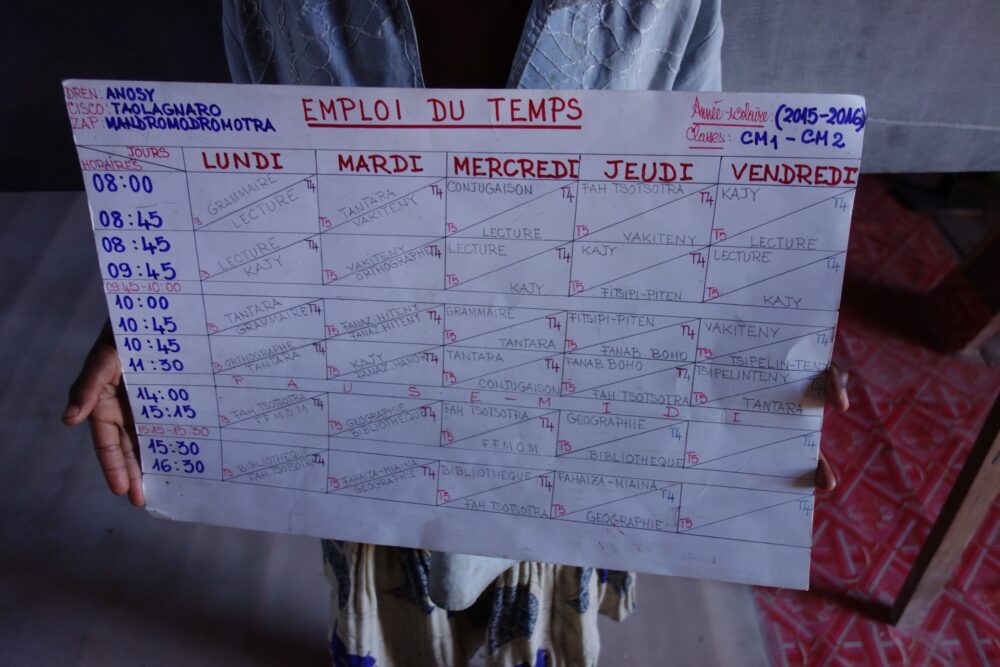 DREN: ANOSY
CISCO: TAOLAGNARO
ZAP: MANDROMODROMOTRA
EMPLOI DU TEMPS
Année-scolaire: (2015-2016)
Classes: CM1 - CM2
JOURS
HORAIRES
LUNDI MARDI MERCREDI JEUDI VENDREDI
08:00
08:45
GRAMMAIRE T4
T5 LECTURE
TANTARA T4
T5 VAKITENY
CONJUGAISON T4
T5 LECTURE
FAH TSOTSOTRA T4
T5 VAKITENY
KAJY T4
T5 LECTURE
08:45
09:45
LECTURE T4
T5 KAJY
VAKITENY T4
T5 ORTHOGRAPHE
LECTURE T4
T5 KAJY
KAJY T4
T5 FITSIPI-PITEN
LECTURE T4
T5 KAJY
09:45-10:00
10:00
10:45
TANTARA T4
T5 GRAMMAIRE
FANAZ.HITENY T4
T5 FANAZ.HITENY
GRAMMAIRE T4
T5 TANTARA
FITSIPI-PITEN T4
T5 FANAB. BOHO
VAKITENY T4
T5 TSIPELIN-TENY
10:45
11:30
ORTHOGRAPHE T4
T5 TANTARA
KAJY T4
T5
TANTARA T4
T5 CONJUGAISON
FANAB BOHO T4
T5 FAH. TSOTSOTRA
TSIPELINTENY T4
T5 TANTARA
PAUSE-MIDI
14:00
15:15
FAH TSOTSOTRA T4
T5 F.F.M.O.M
GEOGRAPHIE T4
T5 BIBLIOTHEQUE
FAH TSOTSOTRA T4
T5 F.F.M.O.M
GEOGRAPHIE T4
T5 BIBLIOTHEQUE
T4
T5
15:15-15:30
15:30
16:30
BIBLIOTHEQUE T4
T5 FAH TSOTSOTRA
FAHAIZA-MIAINA T4
T5 GEOGRAPHIE
BIBLIOTHEQUE T4
T5 FAH TSOTSOTRA
FAHAIZA-MIAINA T4
T5 GEOGRAPHIE
T4
T5